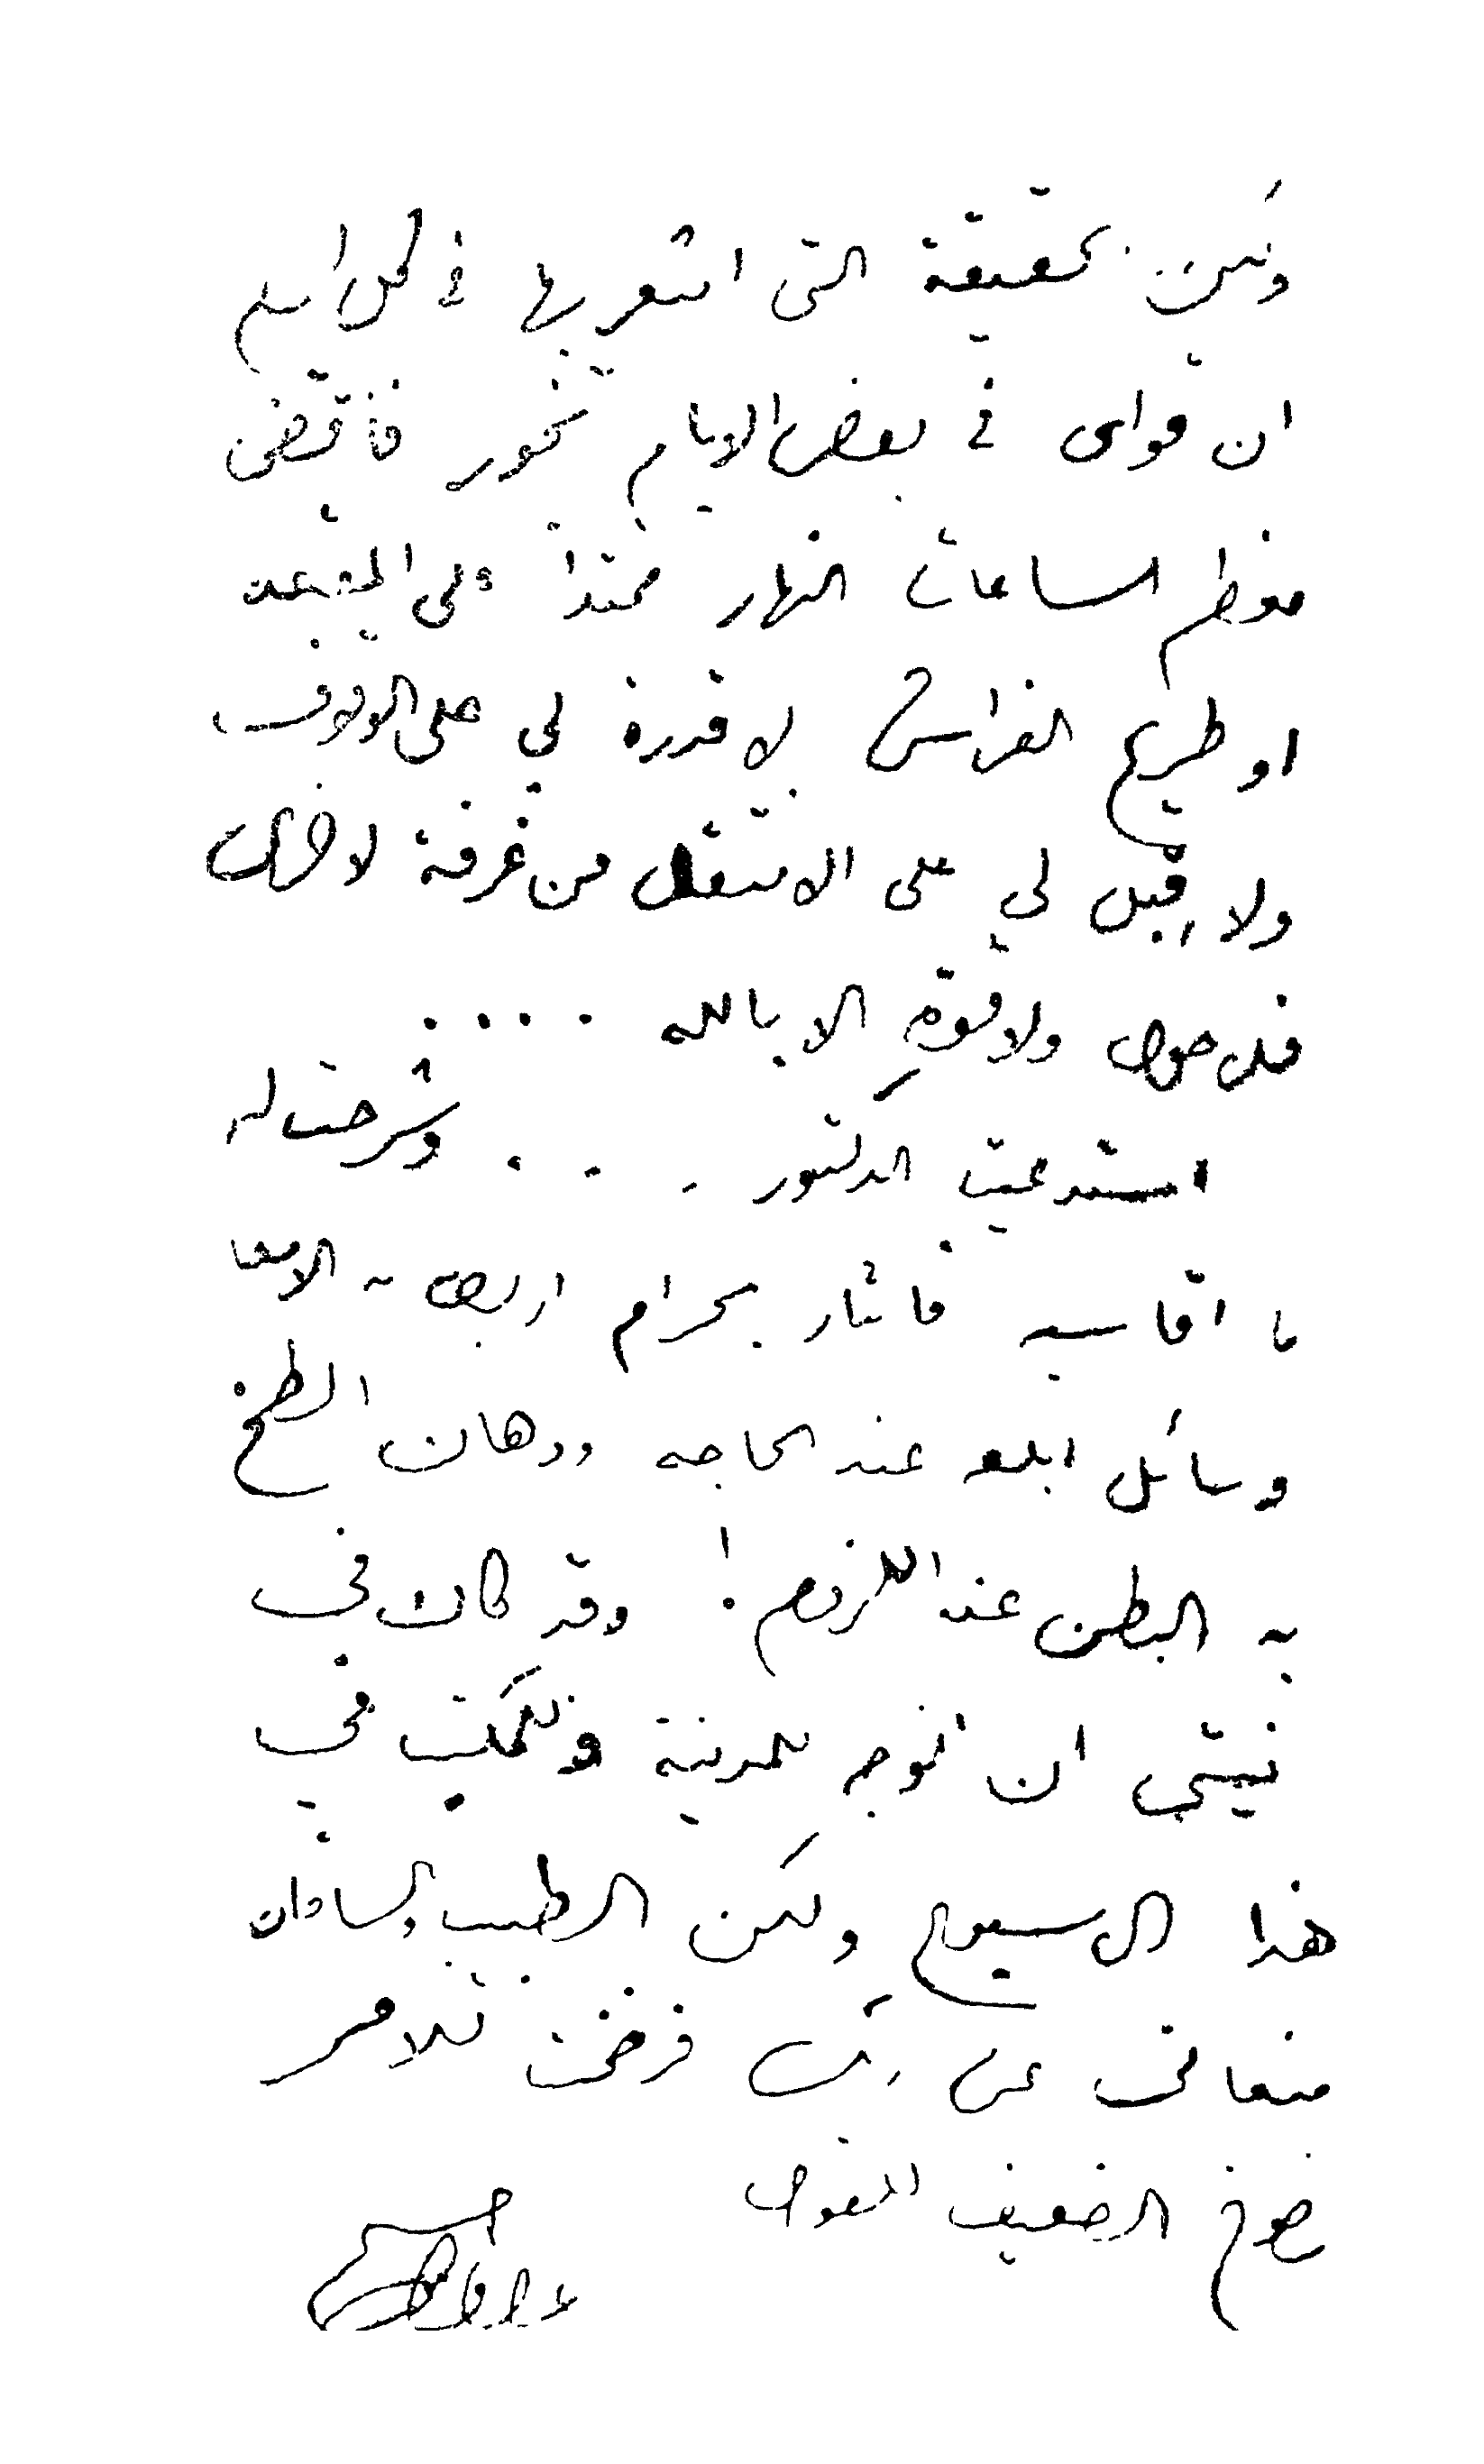 ولكن الحقيقة التى اشعر بها فى كل
ان قواى فى بعض الايام تخور فأقضى
معظم الساعات النهار ممتداً على المقعد
او طريح الفراش لا قدرة لي على الوقوف
ولا قبل لي على الانتقال من غرفة لاخرى
فلا حول ولا قوة الا بالله ....
استدعيت الدكتور ... وشرحت له
ما اقاسيه فاشار بحزام الامعا
وسائل ابلعه عند الحاجه ودهان الطخ
به البطن عند اللزوم ! وقد كان في
نيتي ان اتوجه للمدينة في
هذا الاسبوع ولكن الطبيب
منعانى عن ذلك فرضخت للامر
رضوخ الضعيف للقوى